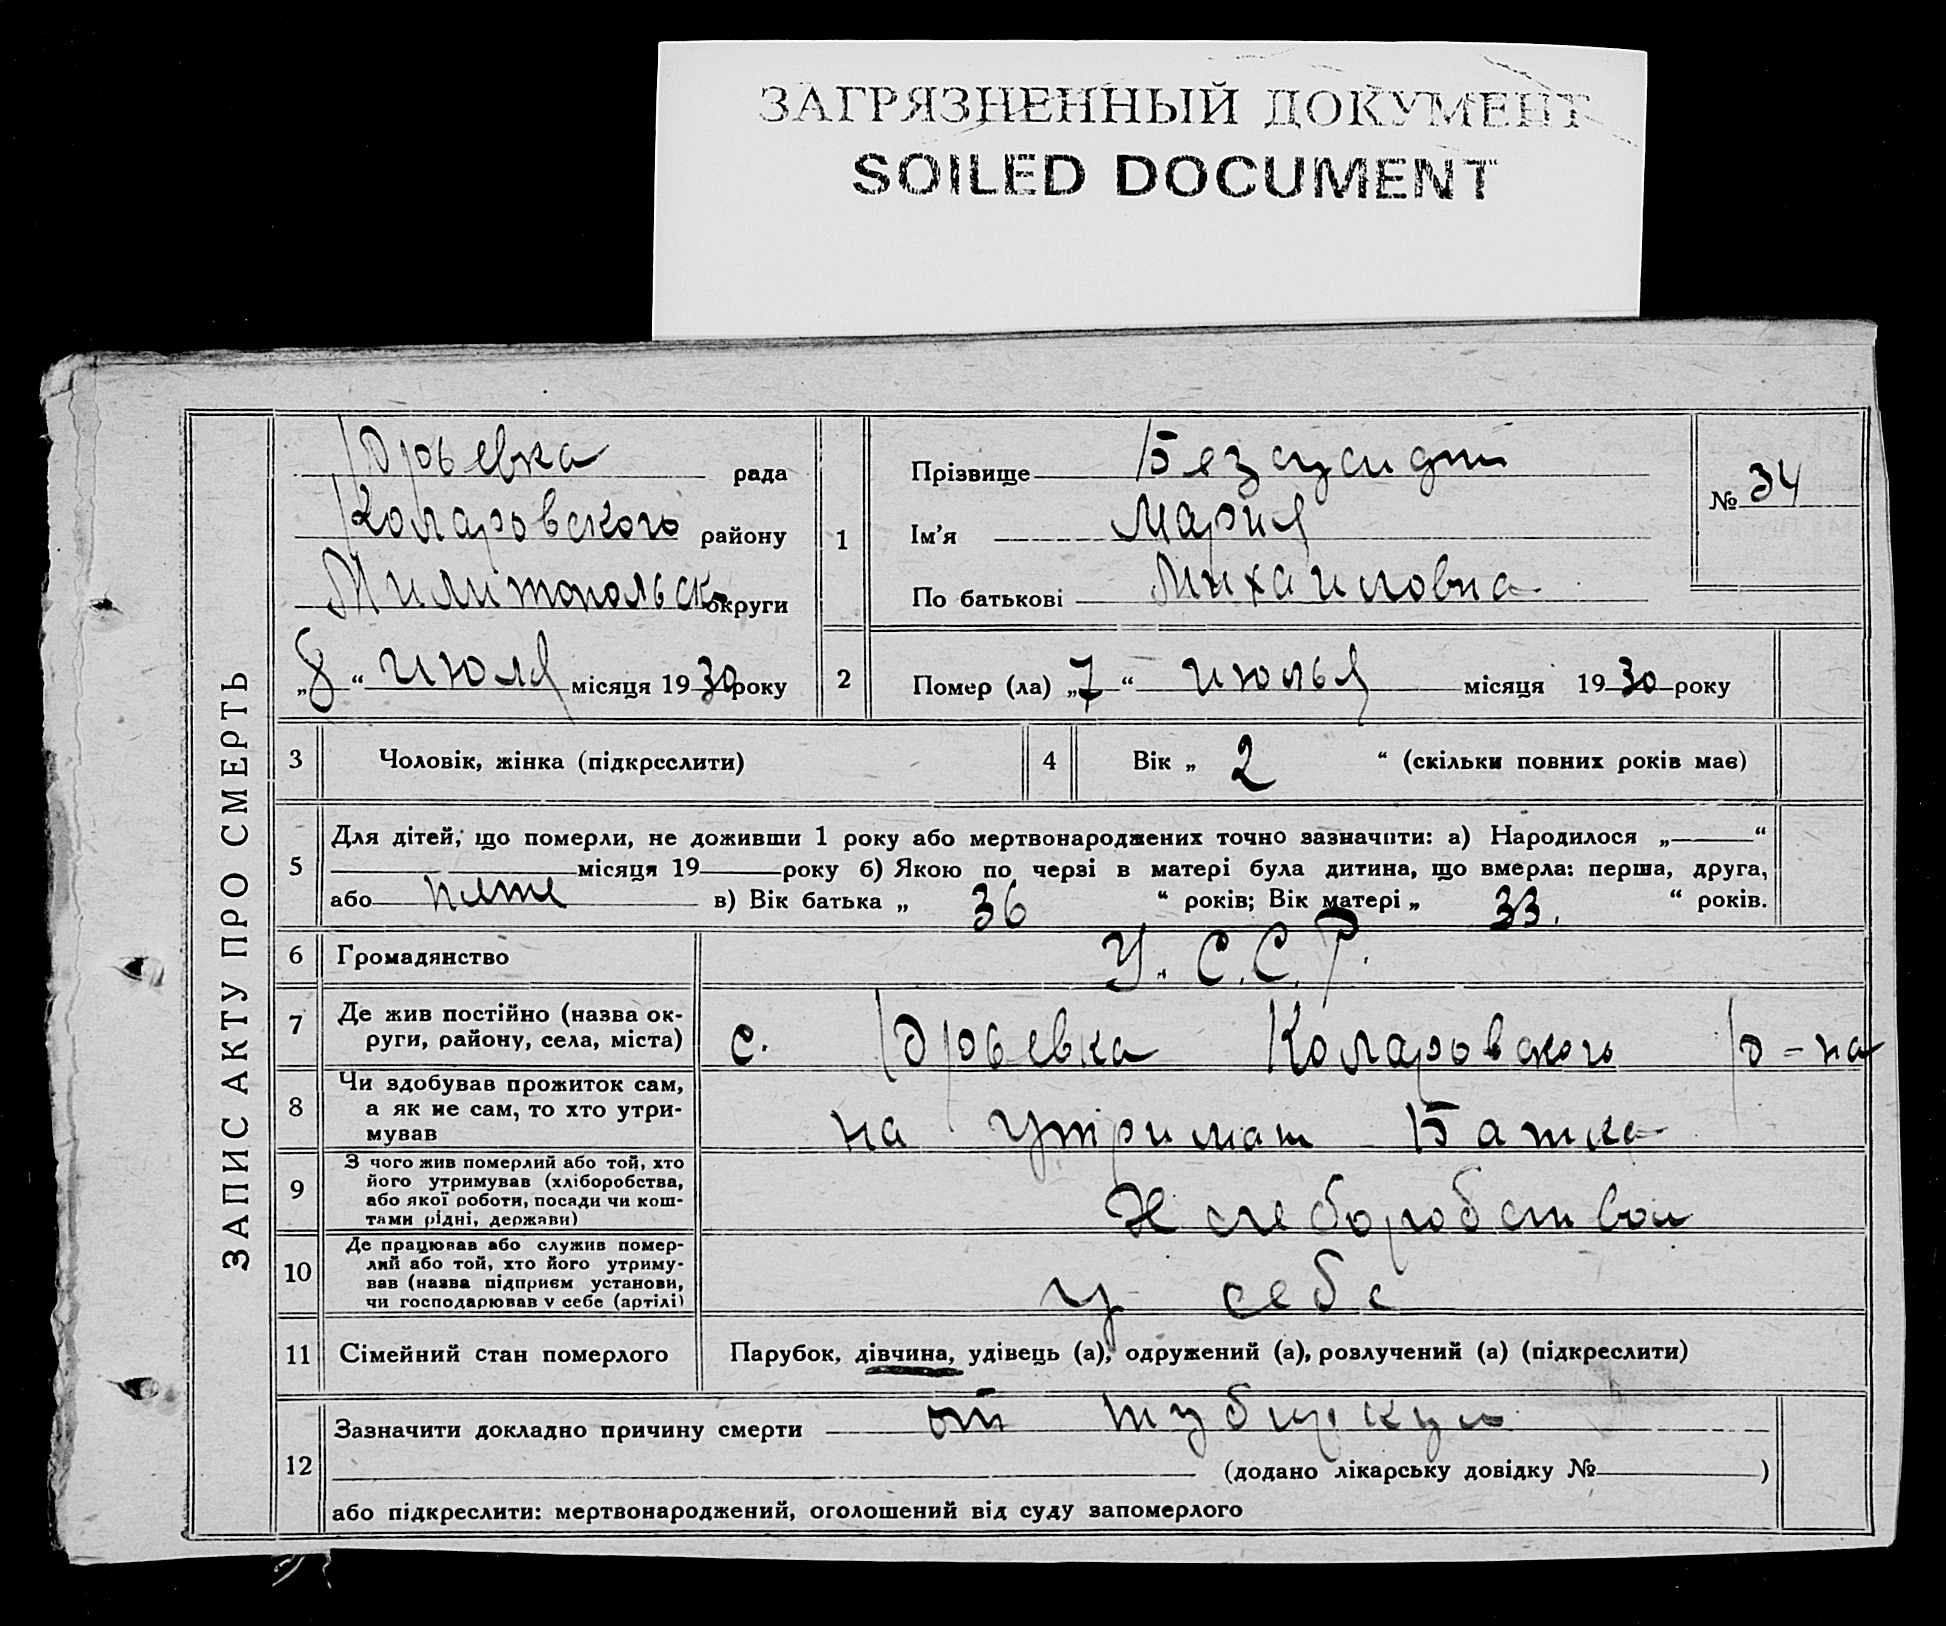 ЗАГРЯЗНЕННЫЙ ДОКУМЕНТ
SOILED DOCUMENT
ЗАПИС АКТУ ПРО СМЕРТЬ
Юрьевка рада
Коларовского району
Милитопольск округи
„8“ июля місяця 1930 року
1
Прізвище
Ім'я Мария
По батькові Михаиловна
№ 34
2 Помер (ла) „7“ июлья місяця 1930 року
3 Чоловік, жінка (підкреслити)
4 Вік „ 2 “ (скільки повних років має)
5 Для дітей, що померли, не доживши 1 року або мертвонароджених точно зазначити: а) Народилося „ “
місяця 19 року б) Якою по черзі в матері була дитина, що вмерла: перша, друга,
або пяте в) Вік батька „ 36 “ років; Вік матері „ 33. “ років.
6 Громадянство У.С.С.Р.
7 Де жив постійно (назва ок-
руги, району, села, міста) с. Юрьевка Коларовского р-на
8 Чи здобував прожиток сам,
а як не сам, то хто утри-
мував на утримат Батка
9 З чого жив померлий або той, хто
його утримував (хліборобства,
або якої роботи, посади чи кош-
тами рідні, держави)
10 Де працював або служив помер-
лий або той, хто його утриму-
вав (назва підприєм установи,
чи господарював у себе (артілі) у себе
11 Сімейний стан померлого Парубок, дівчина, удівець (а), одружений (а), розлучений (а) (підкреслити)
12 Зазначити докладно причину смерти от тубиркул
(додано лікарську довідку № )
або підкреслити: мертвонароджений, оголошений від суду запомерлого